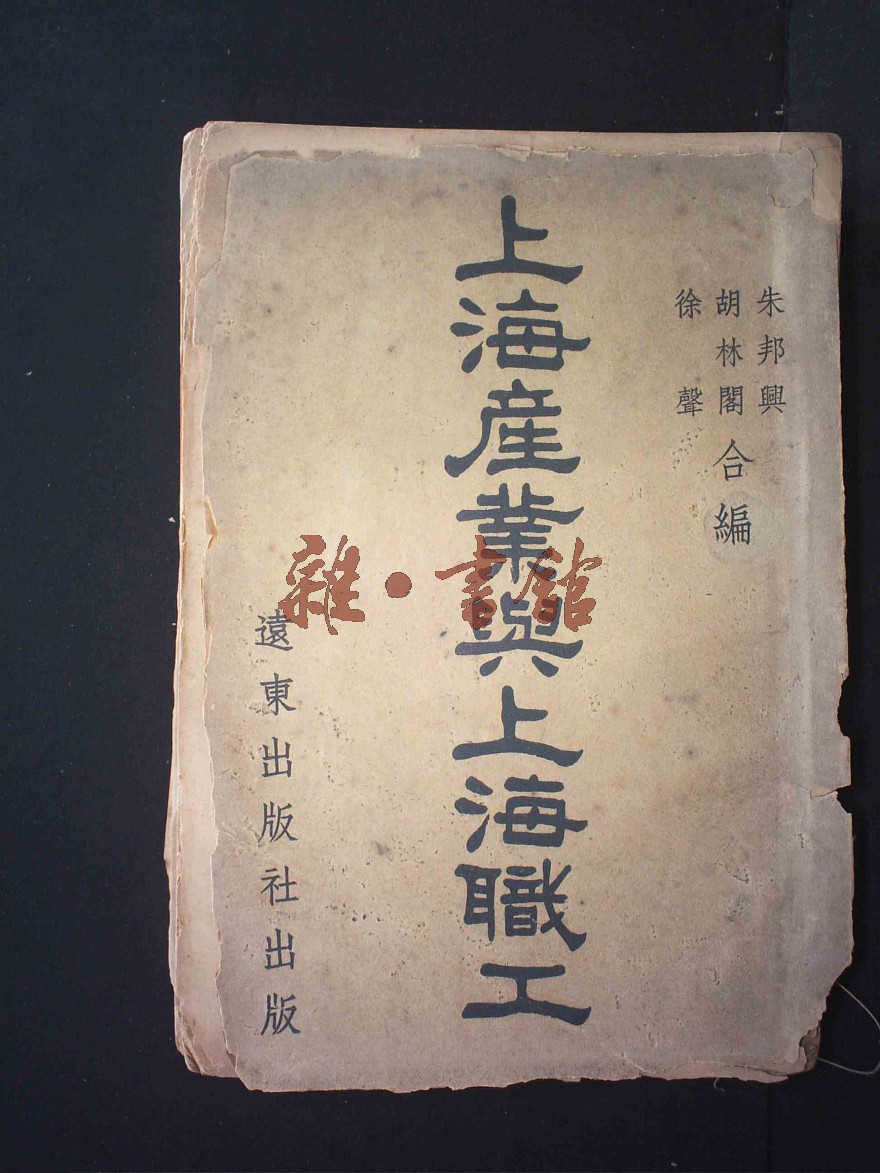 朱邦興
胡林閣
徐聲
合編
上海産業與上海職工
遠東出版社出版
雜·書館